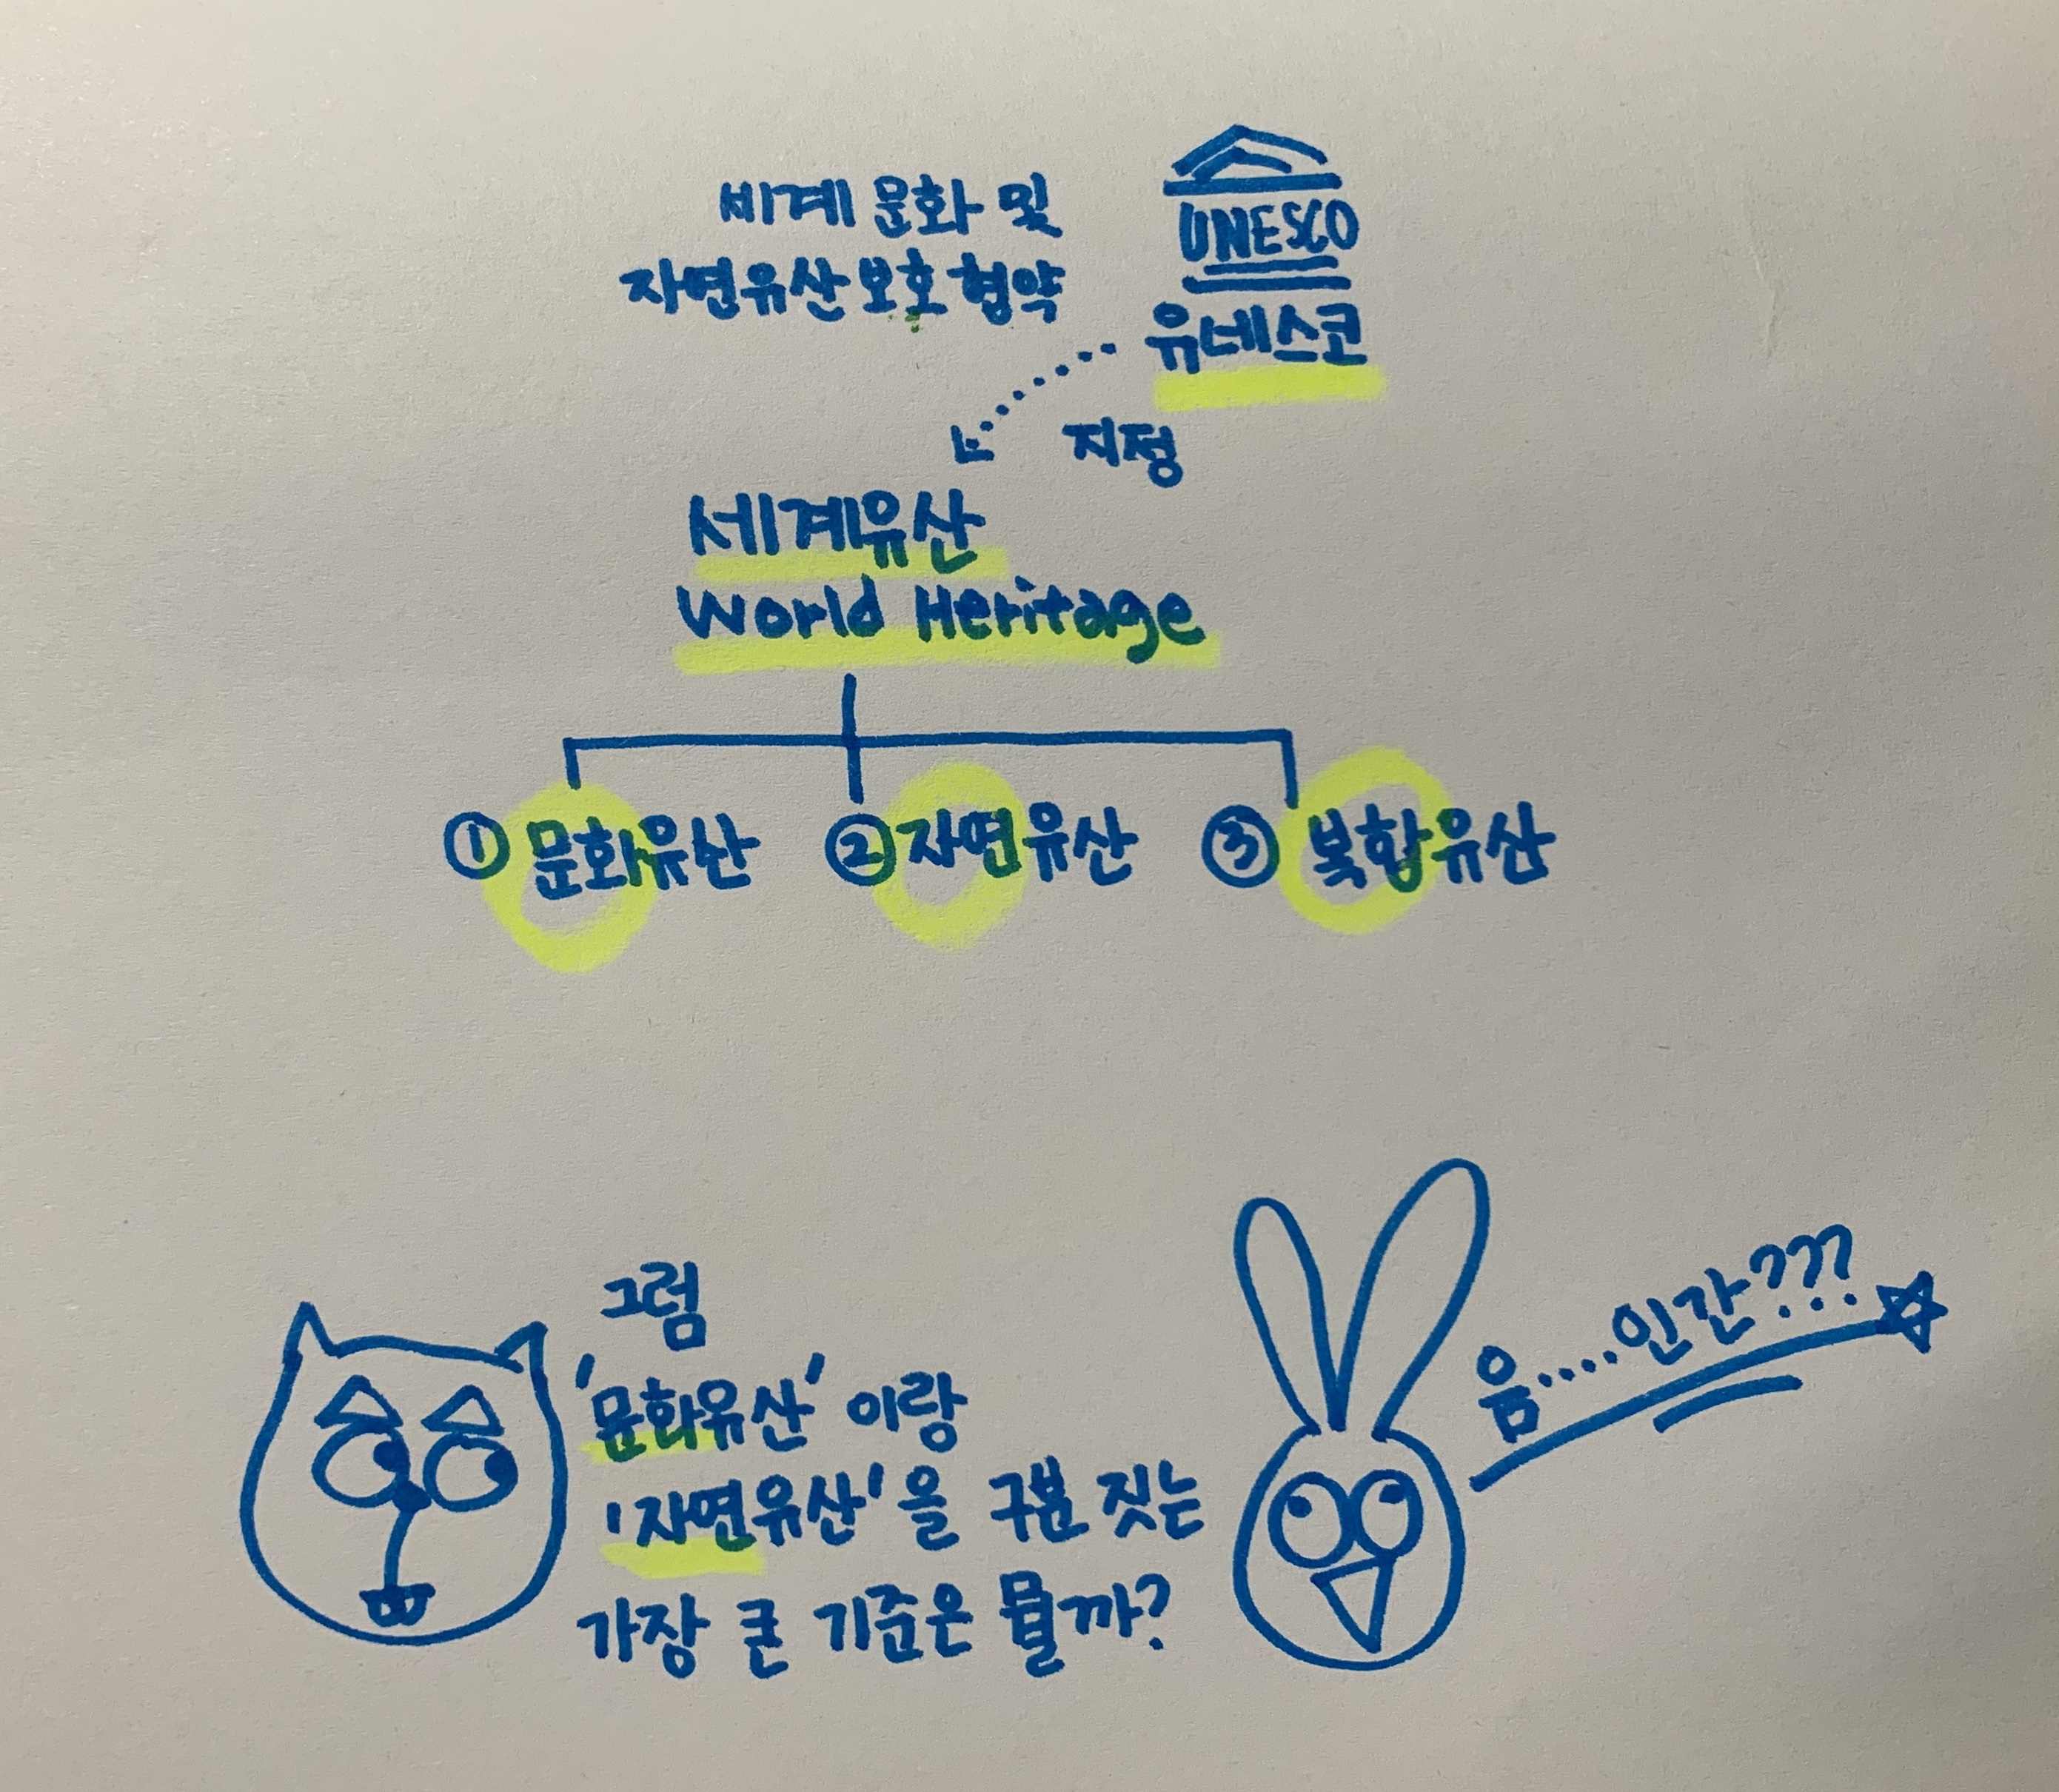 세계 문화 및
자연유산 보호 협약
UNESCO
유네스코
지정
세계유산
World Heritage
① 문화유산 ② 자연유산 ③ 복합유산
그럼
'문화유산' 이랑
'자연유산'을 구분 짓는
가장 큰 기준은 뭘까?
음....인간???